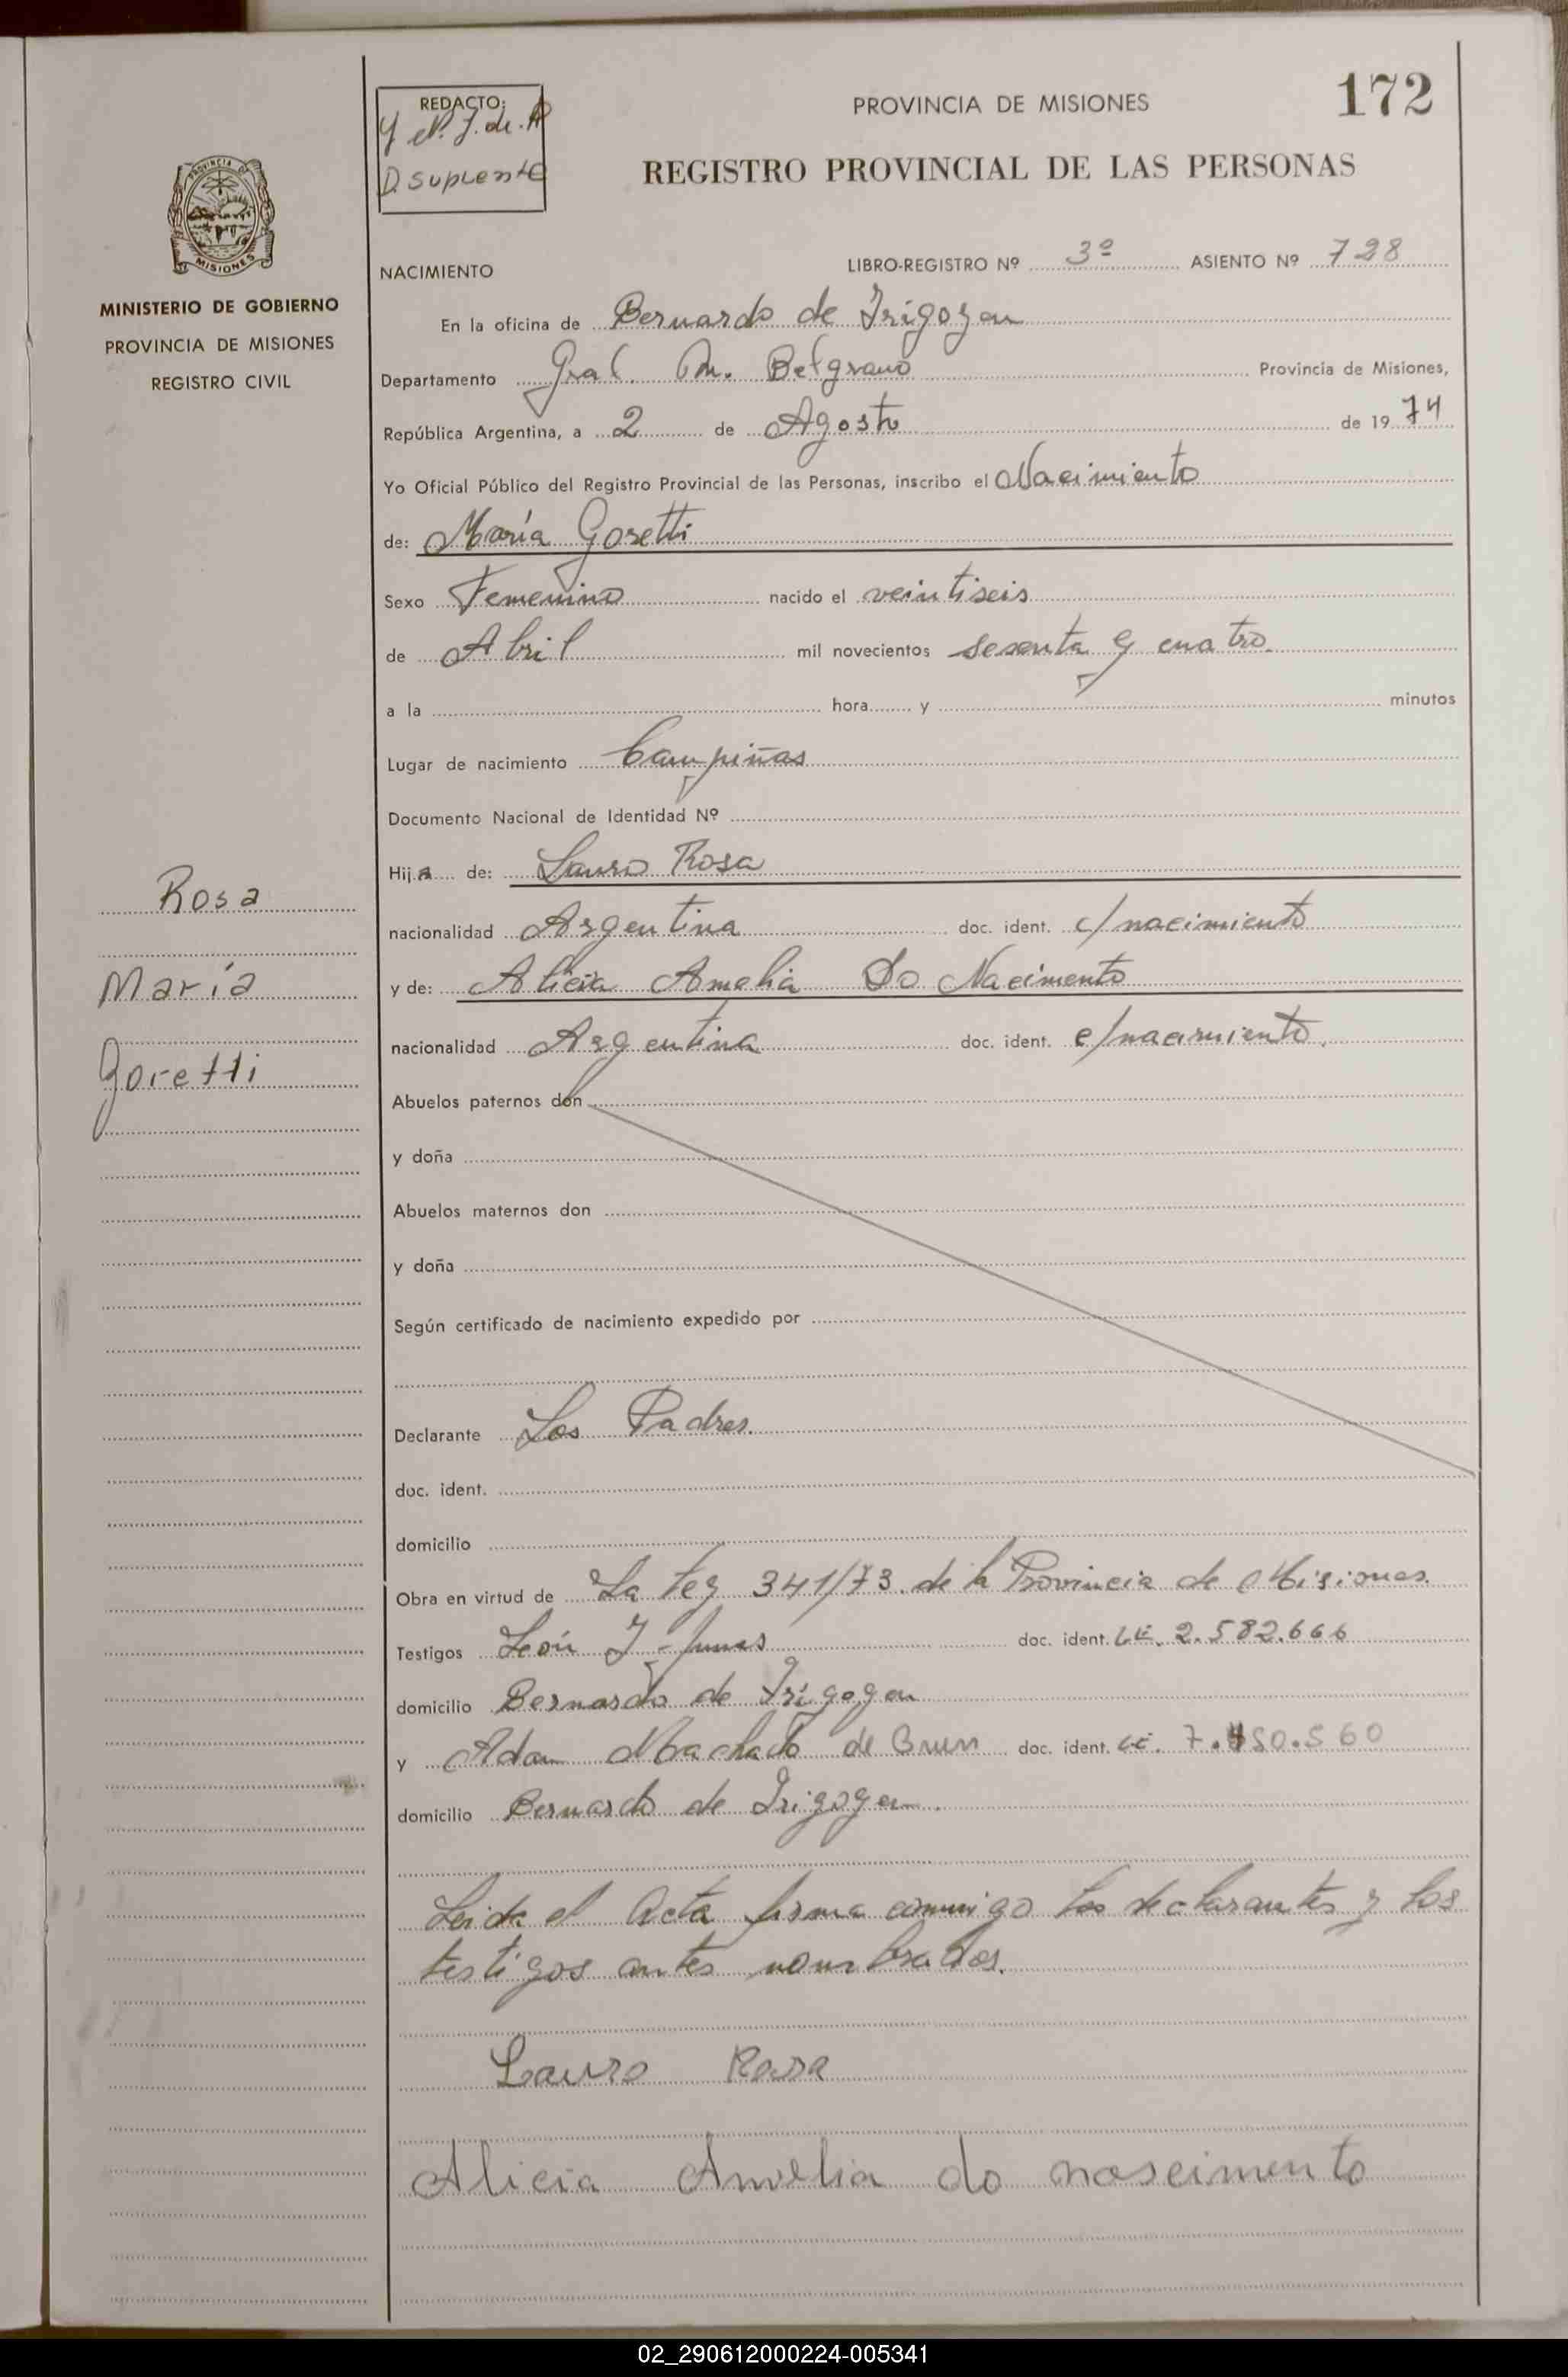 172
REDACTO:
D. suplente
PROVINCIA DE MISIONES
REGISTRO PROVINCIAL DE LAS PERSONAS
PROVINCIA DE
MISIONES
MINISTERIO DE GOBIERNO
PROVINCIA DE MISIONES
REGISTRO CIVIL
NACIMIENTO LIBRO-REGISTRO Nº 3º ASIENTO Nº 728
En la oficina de Bernardo de Irigoyen
Departamento Gral. M. Belgrano Provincia de Misiones,
República Argentina, a 2 de Agosto de 1974
Yo Oficial Público del Registro Provincial de las Personas, inscribo el Nacimiento
de: María Goretti
Sexo Femenino nacido el veintiseis
de Abril mil novecientos sesenta y cuatro.
a la hora y minutos
Lugar de nacimiento Campiñas
Documento Nacional de Identidad Nº
Hija de: Lauro Rosa
nacionalidad Argentina doc. ident. c/nacimiento
y de: Alicia Amelia Do Nacimento
nacionalidad Argentina doc. ident. c/nacimiento.
Abuelos paternos don
y doña
Abuelos maternos don
y doña
Según certificado de nacimiento expedido por
Declarante Los Padres.
doc. ident.
domicilio
Obra en virtud de La Ley 341/73. de la Provincia de Misiones.
Testigos León J. doc. ident. LE. 2.582.666
domicilio Bernardo de Irigoyen
y Adan Machado de Brun doc. ident. LE. 7.450.560
domicilio Bernardo de Irigoyen.
Leida el Acta firma conmigo los declarantes y los
testigos antes nombrados.
Lauro Rosa
Alicia Amelia do nascimento
Rosa
María
Goretti
02_290612000224-005341